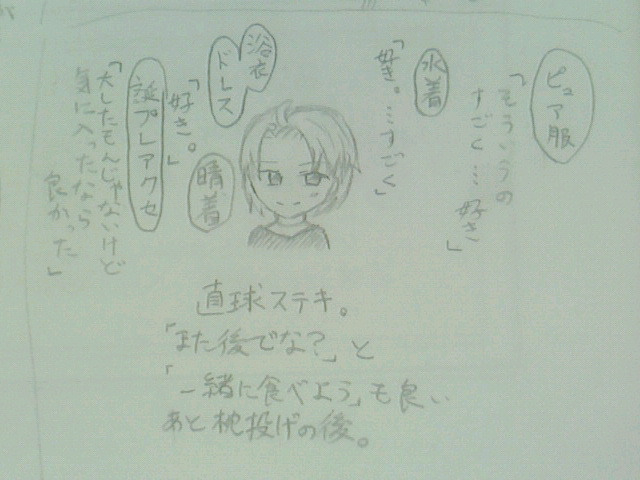 ピュア服
「そういうの
すごく…好き」
水着
「好き。…すごく」
浴衣
ドレス
「好き。」
晴着
誕プレアクセ
「大したもんじゃないけど
気に入ったなら
良かった」
直球ステキ。
「また後でな?」と
「一緒に食べよう」も良い
あと枕投げの後。